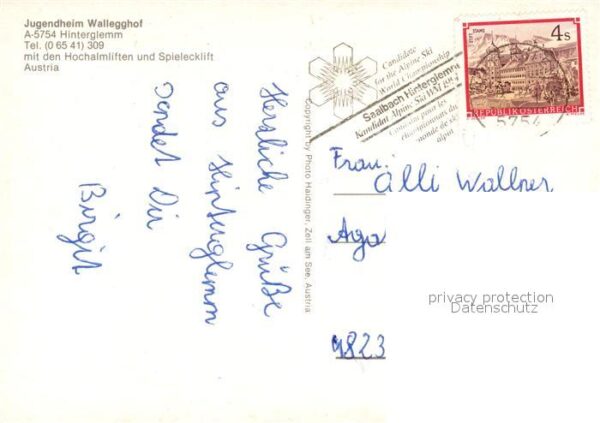 Jugendheim Wallegghof
A-5754 Hinterglemm
Tel. (0 65 41) 309
mit den Hochalmliften und Spielecklift
Austria
Herzliche Grüße
aus Hinterglemm
sendet Dir
Birgit
Copyright by Photo Haidinger, Zell am See, Austria
Candidate
for the Alpine Ski
World Championship
Saalbach Hinterglemm
Kandidat Alpine Ski WM
championnats du
monde de ski
alpin
STIFT STAMS
4 S
REPUBLIK ÖSTERREICH
5754
Frau
Alli Wallner
Aga
4823
privacy protection
Datenschutz